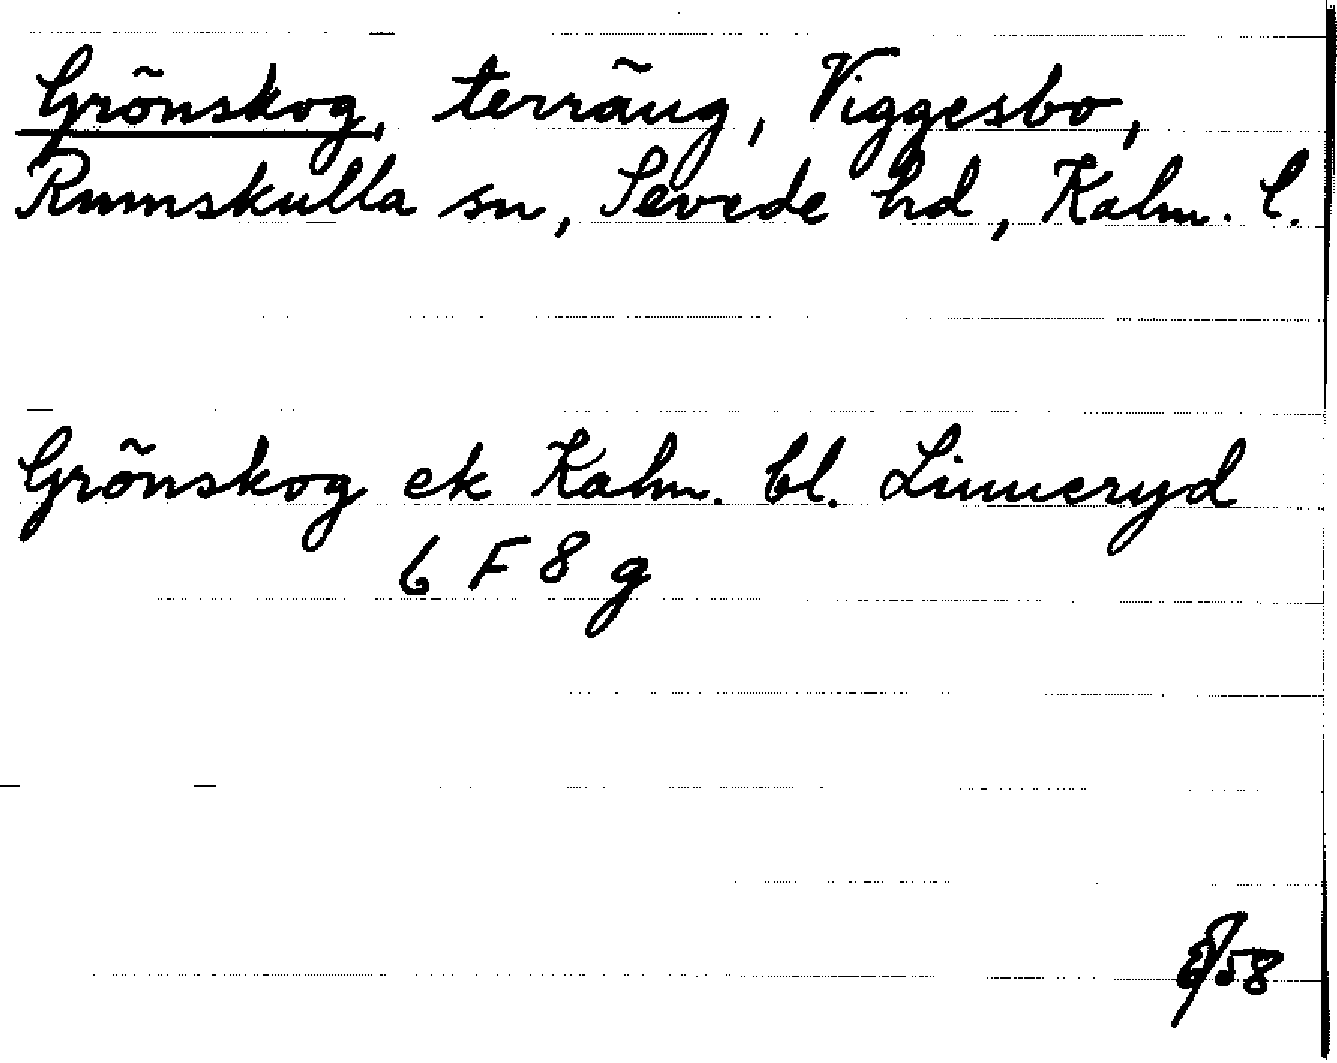 Grönskog, terräng, Viggesbo,
Rumskulla sn, Sevede hd, Kalm. l.
Grönskog ek Kalm. bl. Linneryd
6 F 8 g